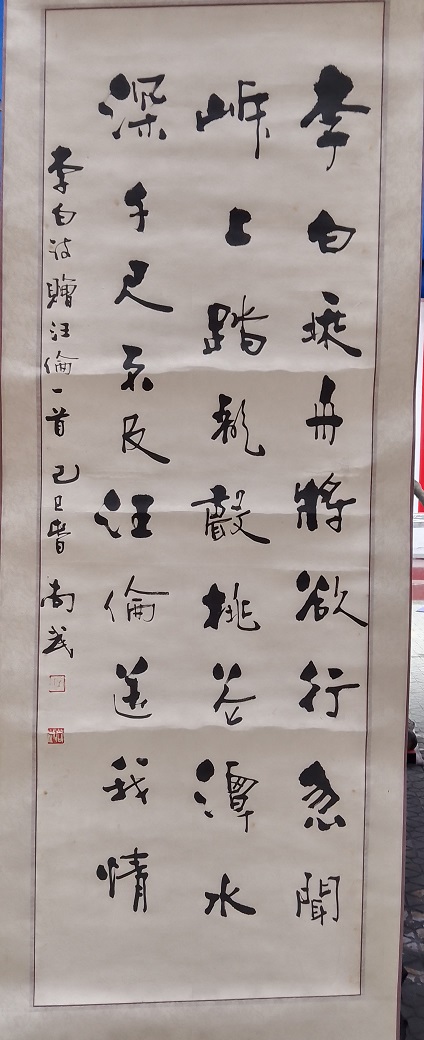 李白乘舟將欲行忽聞
岸上踏歌聲桃花潭水
深千尺不及汪倫送我情
李白詩贈汪倫一首 己巳春 尚武